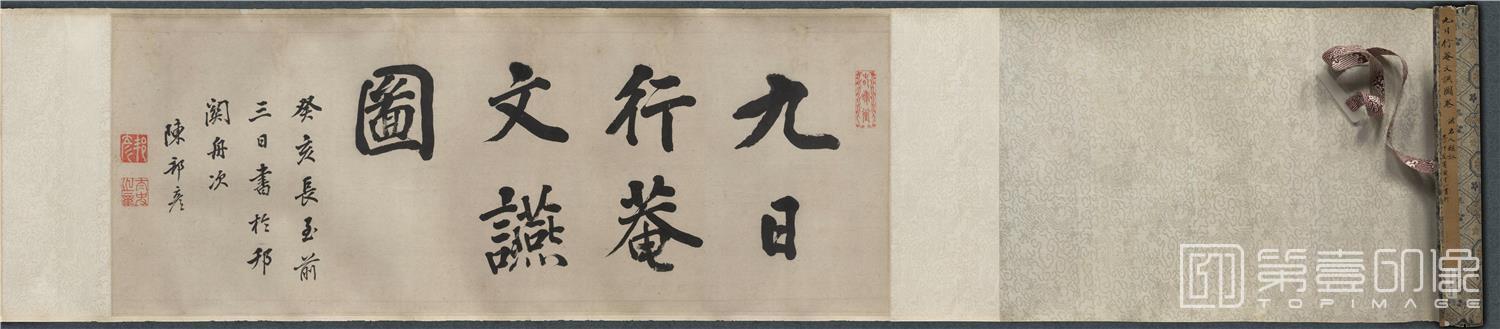 九日行菴文讌圖卷
九日
行菴
文讌
圖
癸亥長至前
三日書於邗
關舟次
陳邦彥
邦彥
第壹印像
TOPIMAGE